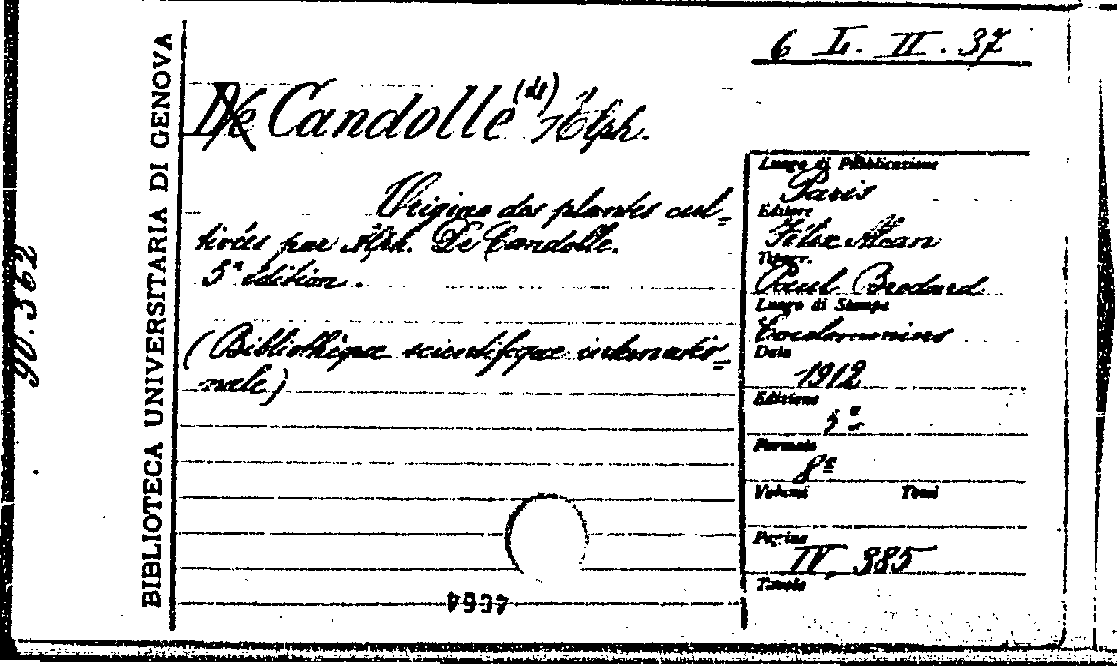 6 L. II. 37
De Candolle (de) Alph.
Origine des plantes cul=
tivées par Alph. De Candolle.
5ª édition.
(Bibliothèque scientifique internatio=
nale)
Luogo di Pubblicazione
Paris
Editore
Félix Alcan
Tipogr.
Paul Brodard
Luogo di Stampa
Coulommiers
Data
1912
Edizione
5ª
Formato
8º
Volumi Tomi
Pagine
IV, 385
Tavole
BIBLIOTECA UNIVERSITARIA DI GENOVA
90.362